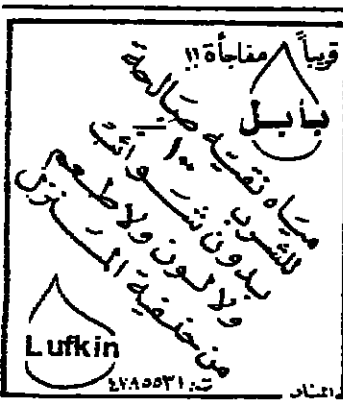 قريباً مفاجأة !!
بابل
مياه نقية صالحة
للشرب ١٠٠٪
بدون شوائب
ولا لون ولا طعم
من حنفية المنزل
Lufkin
ت: ٤٧٨٥٥٣١
المنار